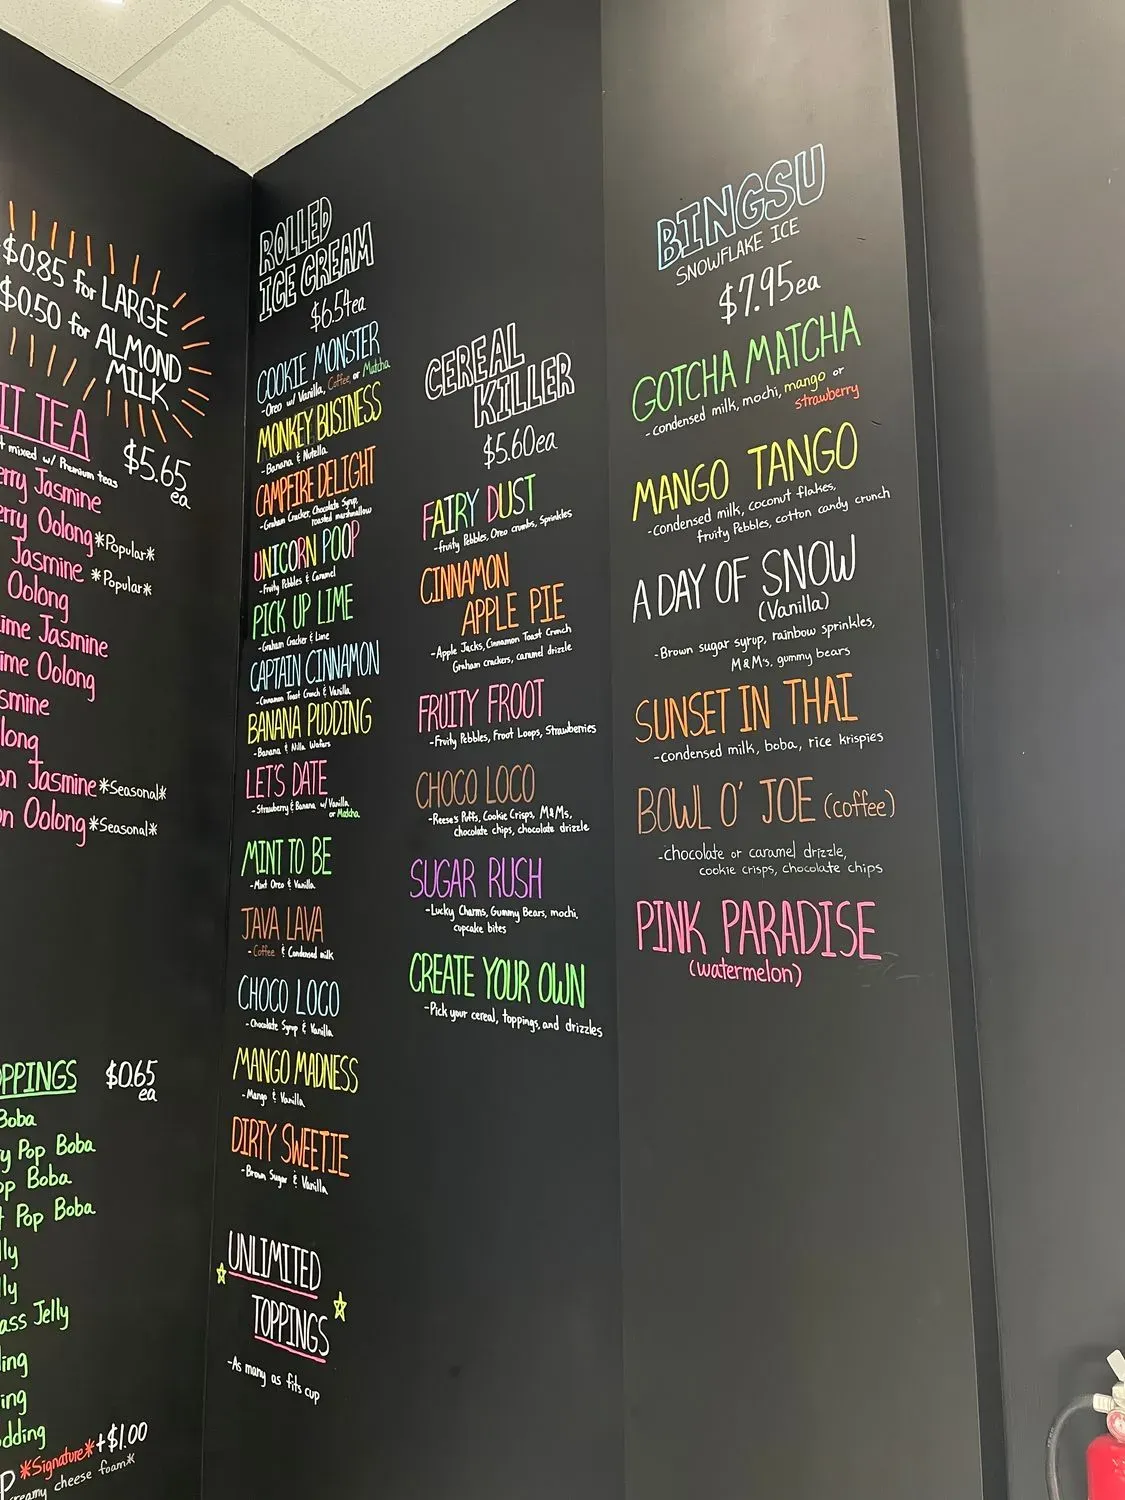 $0.85 for LARGE
$0.50 for ALMOND
MILK
TEA
mixed w/ Premium teas
$5.65
ea
Jasmine
Oolong *Popular*
Jasmine *Popular*
Oolong
Jasmine
Oolong
Jasmine *Seasonal*
Oolong *Seasonal*
$0.65
ea
Boba
Pop Boba
Boba
Pop Boba
Jelly
*Signature* +$1.00
cheese foam*
ROLLED
ICE CREAM
$6.54ea
COOKIE MONSTER
-Oreo w/ Vanilla, Coffee, or Matcha
MONKEY BUSINESS
-Banana & Nutella
CAMPFIRE DELIGHT
-Graham Cracker, Chocolate Syrup,
roasted marshmallow
UNICORN POOP
-Fruity Pebbles & Caramel
PICK UP LIME
-Graham Cracker & Lime
CAPTAIN CINNAMON
-Cinnamon Toast Crunch & Vanilla
BANANA PUDDING
-Banana & Nilla Wafers
LET'S DATE
-Strawberry & Banana w/ Vanilla
or Matcha
MINT TO BE
-Mint Oreo & Vanilla
JAVA LAVA
-Coffee & Condensed milk
CHOCO LOCO
-Chocolate Syrup & Vanilla
MANGO MADNESS
-Mango & Vanilla
DIRTY SWEETIE
-Brown Sugar & Vanilla
UNLIMITED
TOPPINGS
-As many as fits cup
CEREAL
KILLER
$5.60ea
FAIRY DUST
-Fruity Pebbles, Oreo crumbs, Sprinkles
CINNAMON
APPLE PIE
-Apple Jacks, Cinnamon Toast Crunch
Graham crackers, caramel drizzle
FRUITY FROOT
-Fruity Pebbles, Froot Loops, Strawberries
CHOCO LOCO
-Reese's Puffs, Cookie Crisps, M&Ms,
chocolate chips, chocolate drizzle
SUGAR RUSH
-Lucky Charms, Gummy Bears, mochi,
cupcake bites
CREATE YOUR OWN
-Pick your cereal, toppings, and drizzles
BINGSU
SNOWFLAKE ICE
$7.95ea
GOTCHA MATCHA
-condensed milk, mochi, mango or
strawberry
MANGO TANGO
-condensed milk, coconut flakes,
fruity Pebbles, cotton candy crunch
A DAY OF SNOW
(Vanilla)
-Brown sugar syrup, rainbow sprinkles,
M&M's, gummy bears
SUNSET IN THAI
-condensed milk, boba, rice krispies
BOWL O' JOE (coffee)
-chocolate or caramel drizzle,
cookie crisps, chocolate chips
PINK PARADISE
(watermelon)